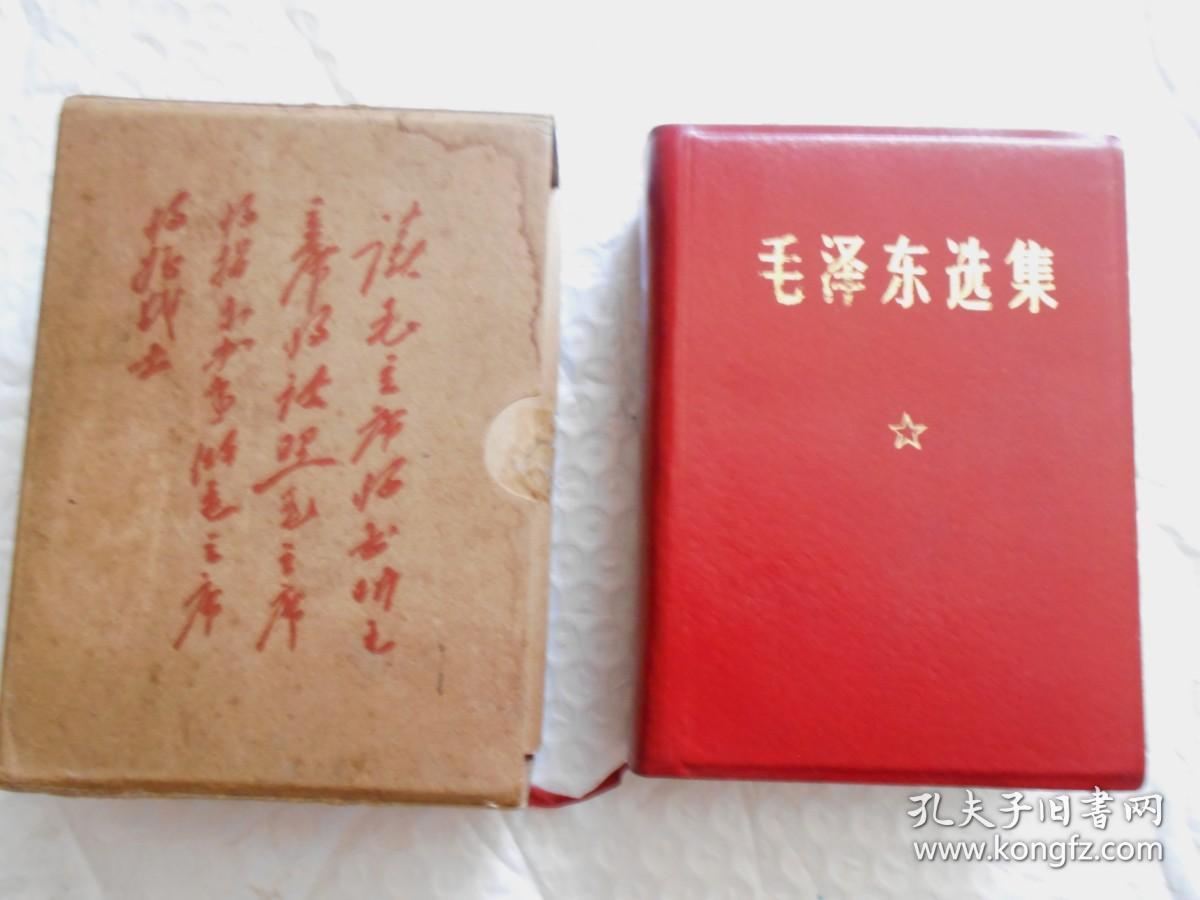 读毛主席的书听毛
主席的话照毛主席
的指示办事做毛主席
的好战士
毛泽东选集
孔夫子旧书网
www.kongfz.com